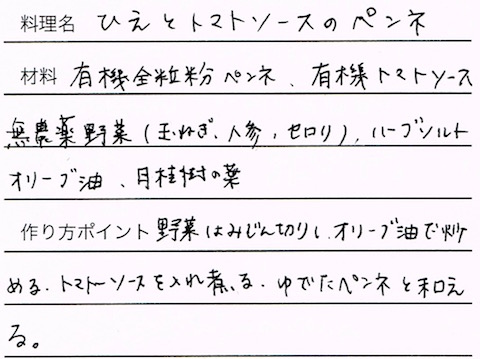 料理名 ひえとトマトソースのペンネ
材料 有機全粒粉ペンネ、有機トマトソース
無農薬野菜(玉ねぎ、人参、セロリ)、ハーブソルト
オリーブ油、月桂樹の葉
作り方ポイント 野菜はみじん切りし、オリーブ油で炒
める、トマトソースを入れ煮る、ゆでたペンネと和え
る。